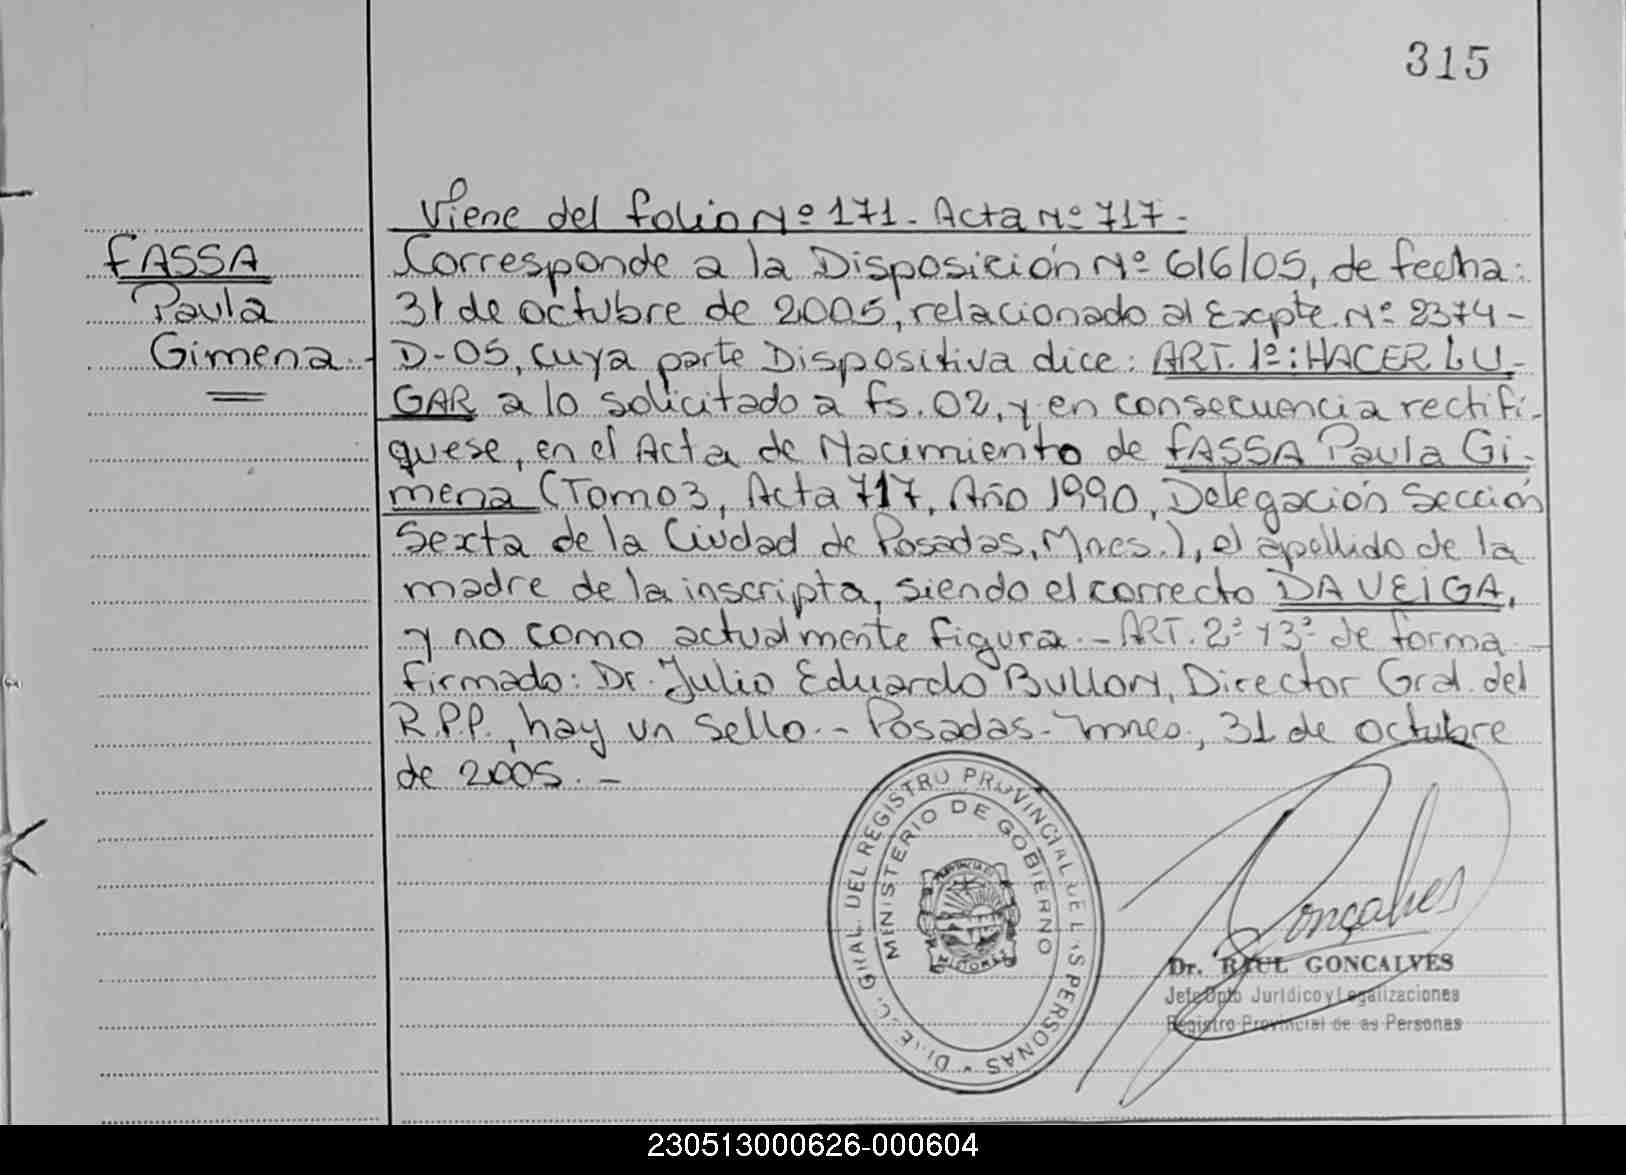 315
Viene del folio Nº 171. Acta Nº 717.
FASSA
Paula
Gimena.-
Corresponde a la Disposición Nº 616/05, de fecha:
31 de octubre de 2005, relacionado al Expte. Nº 2374-
D-05, cuya parte Dispositiva dice: ART. 1º: HACER LU-
GAR a lo solicitado a fs. 02, y en consecuencia rectifi-
quese, en el Acta de Nacimiento de FASSA Paula Gi-
mena (Tomo 3, Acta 717, Año 1990, Delegación Sección
Sexta de la Ciudad de Posadas, Mnes.), el apellido de la
madre de la inscripta, siendo el correcto DA VEIGA,
y no como actualmente figura.- ART. 2º y 3º de forma -
firmado: Dr. Julio Eduardo Bullon, Director Gral. del
R.P.P., hay un sello.- Posadas- Mnes., 31 de octubre
de 2005.-
GRAL. DEL REGISTRO PROVINCIAL DE L S PERSONAS
MINISTERIO DE GOBIERNO
MISIONES
Gonçalves
Dr. RAUL GONCALVES
Jefe Dpto Jurídico y Legalizaciones
Registro Provincial de as Personas
230513000626-000604